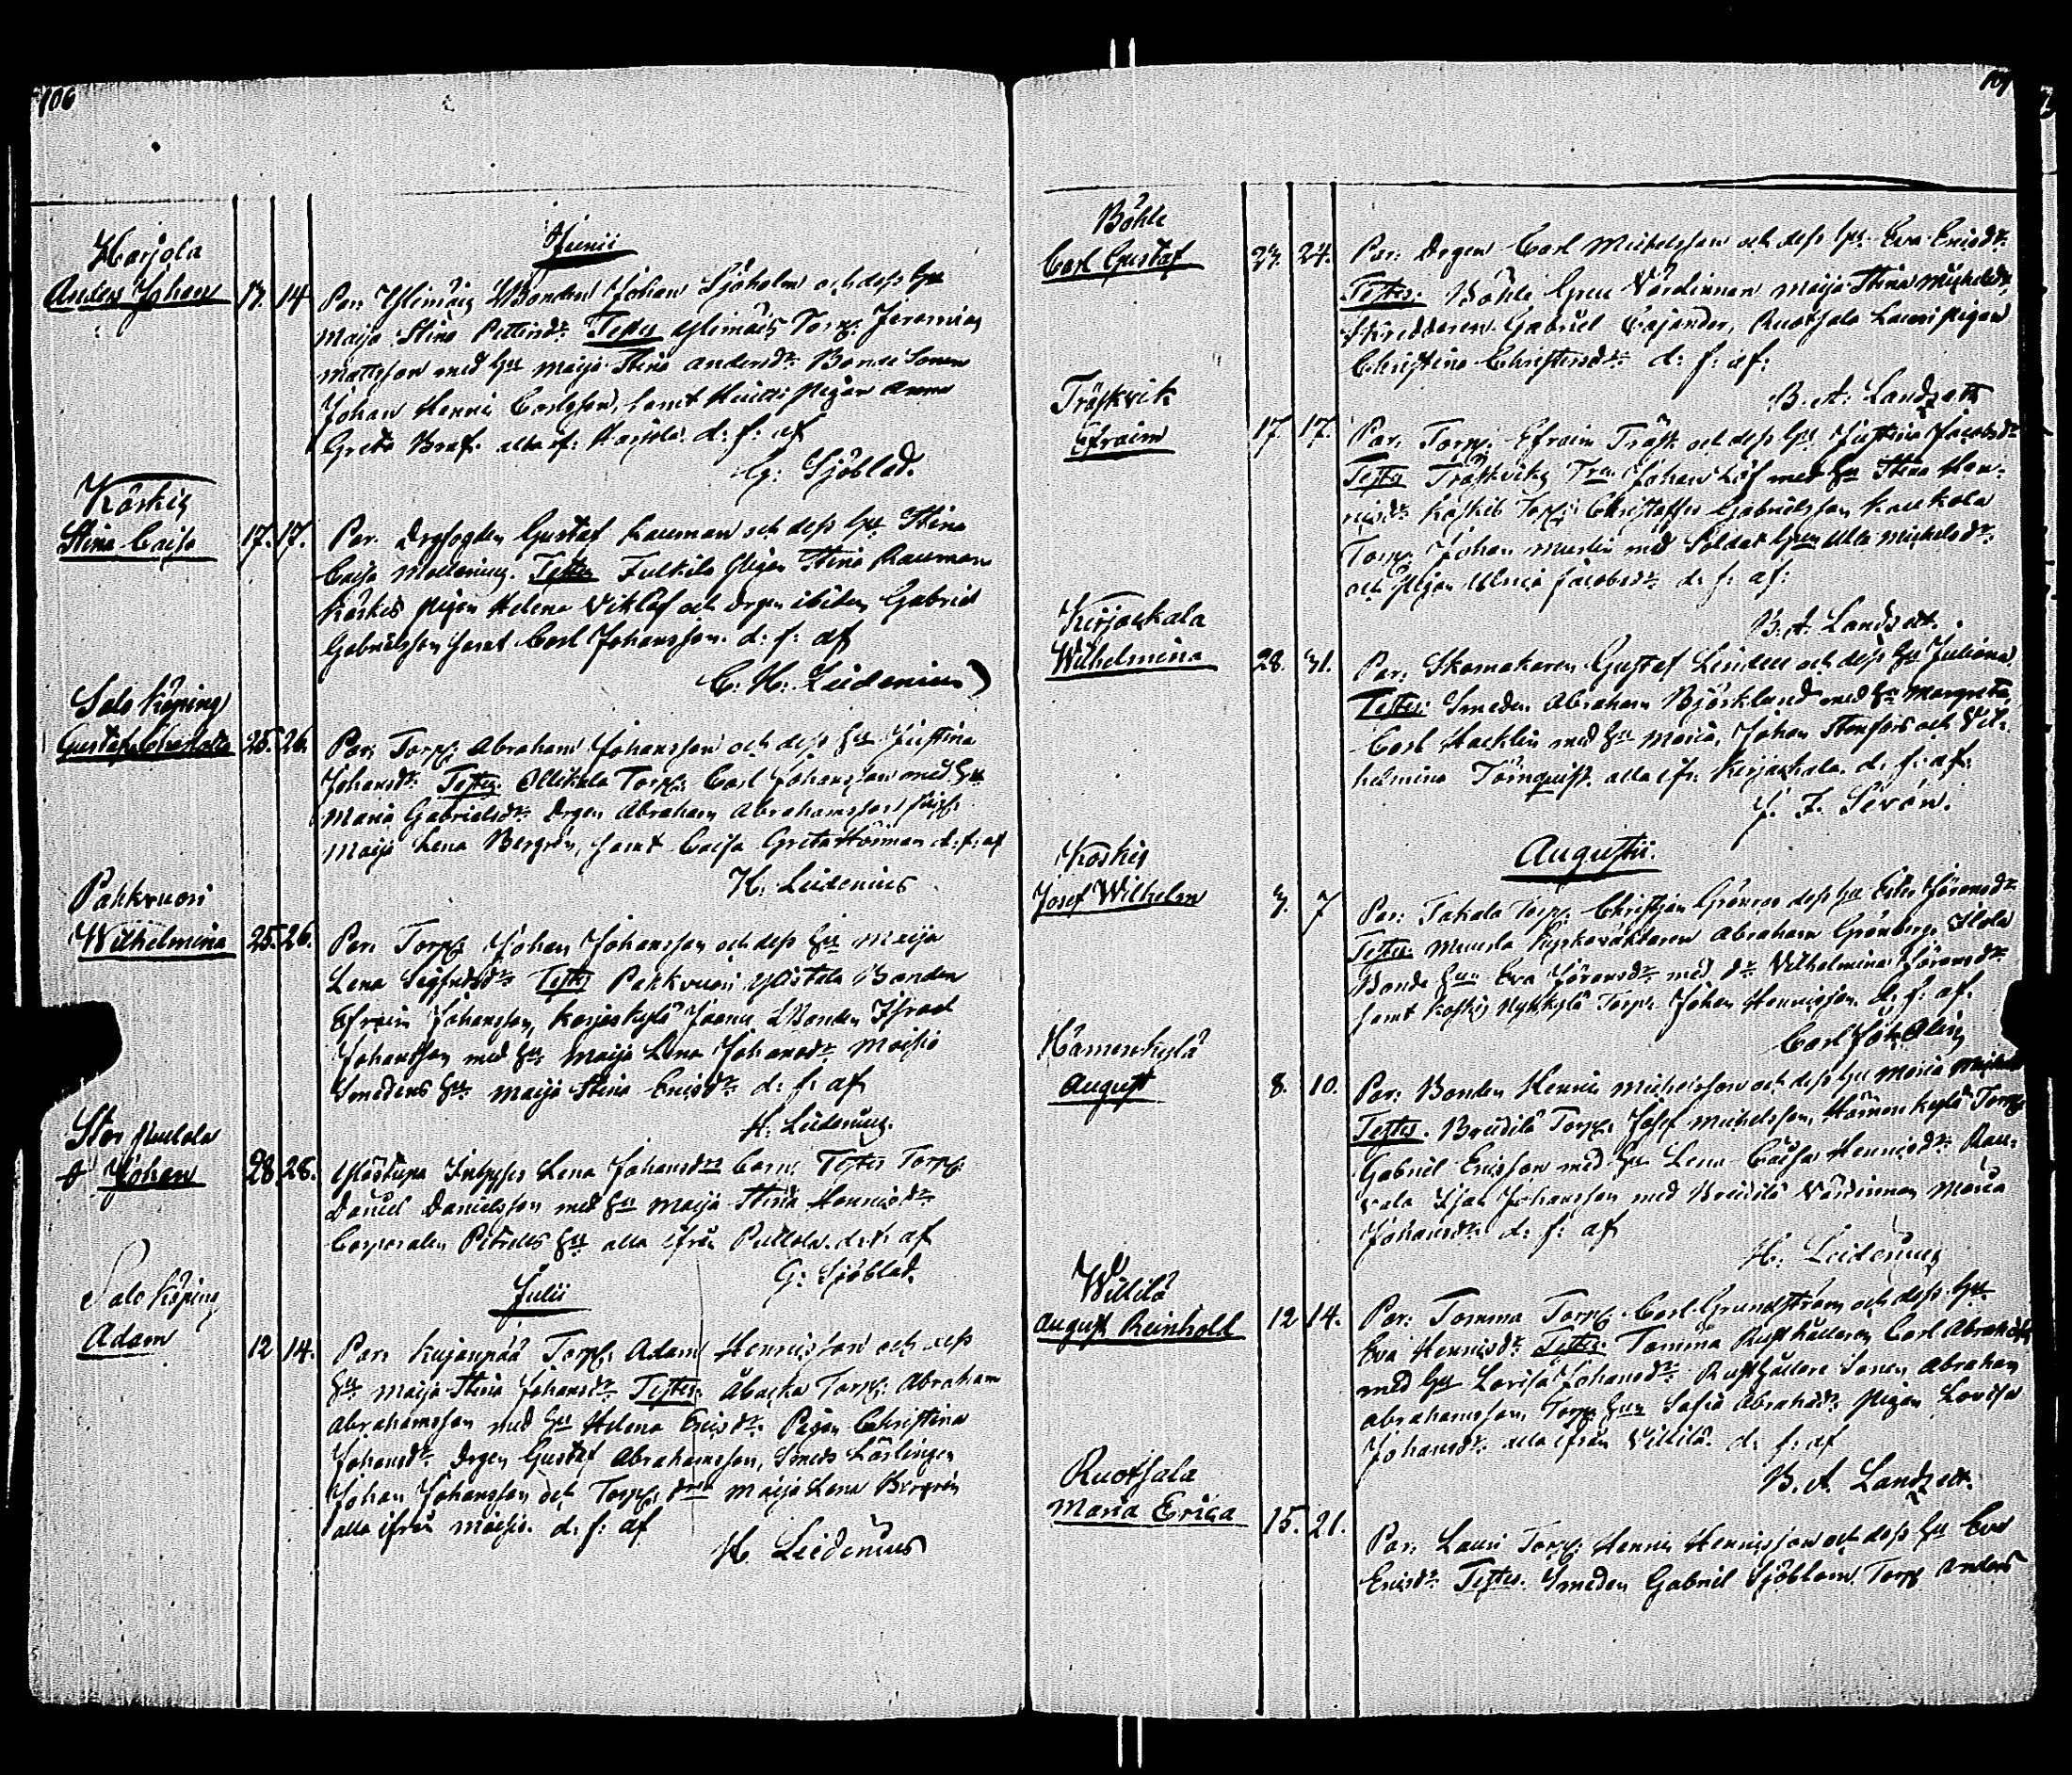 106
Junii
Harjola
Anders Johan 13. 14. Par: Ylimäis Bonden Johan Sjöholm och dess Hu
Maija Stina Pettersdr. Testes Ylimäis Torp. Jeremias
Mattsson med Hu Maija Stina Andersdr. Bonde Sonen
Johan Henric Carlsson, samt Pigan Anna
Greta Graf. alla if: Harjola. d: f: af
G: Sjöblad.
Koskis
Stina Caisa 17. 17. Par. Gustaf Rauman och dess Hu Stina
Caisa Mollerius. Testes Pigan Stina Rauman
Koskis Pigan Helena Viklöf och Drgen ibidem Gabriel
Gabrielsson samt Carl Johansson. d: f: af
C: H: Leidenius
Salo Köping
Gustafa Christina 25. 26. Par: Torp: Abraham Johansson och dess Hu Justina
Johansdr. Testes Ollikala Torp: Carl Johansson med Hu
Maria Gabrielsdr. Drgen Abraham Abrahamsson
Maija Lena Bergrén, samt Caisa Greta d: f: af
H. Leidenius
Pahkvuori
Wilhelmina 25. 26. Par. Torp. Johan Johansson och dess Hu Maija
Lena Sigfridsdr Testes Pahkvuori Ylistalo Bonden
Efraim Johansson, Karjaskylä Jaanu Bonden Israel
Johansson med Hu Maija Lena Johansdr.
Smedens Hu Maija Stina Ericsdr. d: f: af
H. Leidenius.
Stor Pullola
Johan 28. 28. Lena Johansdr Barn. Testes Torp:
Daniel Danielsson med Hu Maija Stina Henricsdr
Corporalen Hu alla ifrån Pullola. d: f: af
G: Sjöblad.
Julii
Salo Köping
Adam 12 14. Par: Kujanpää Torp: Adam Henricsson och dess
Hu Maija Stina Johansdr Testes: Torp: Abraham
Abrahamsson med Hu Helena Ericsdr. Pigan Christina
Johansdr. Drgen Gustaf Abrahamsson, Smeds Lärlingen
Johan Johansson och Torp: dr Maija Lena Bergrén
alla ifrån d: f: af
H Leidenius
107
Böhle
Carl Gustaf 23. 24. Par: Drgen Carl Michelsson och dess Hu Eva Ericsdr.
Testes: Böhle Värdinnan Maija Stina Michelsdr,
Skreddaren Gabriel Cajander, Ruotsala Lauri Pigan
Christina Christersdr: d: f: af:
B. A. Landzett
Träskvik
Efraim 17. 17. Par, Torp: Efraim Träsk och dess Hu Justina Jacobsdr
Testes Träskviks Johan Löf med Hu Stina Hen-
ricsdr. Koskis Torp: Christoffer Gabrielsson Kaukola
Torp. Johan med Soldat Hun Ulla Michelsdr.
och Pigan Jacobsdr. d: f: af:
B. A. Landzett.
Kirjaskala
Wilhelmina 28. 31. Par: Skomakaren Gustaf Lindell och dess Hu Juliana
Testes: Smeden Abraham Björklund med Hu Margreta,
Carl med Hu Maria, Johan Stenfors och Vil-
helmina Törnquist. alla ifr: Kirjaskala. d: f: af:
J. F. Sevón.
Augustii.
Koskis
Josef Wilhelm 3. 7 Par: Takala Torp: Christian Grönroos dess Hu Göransdr
Testes: Muurla Kyrkoväktaren Abraham Grönberg, Ilola
Bonde Hun Eva Göransdr med dr Vilhelmina Göransdr
samt Koskis Nykkylä Torp: Johan Henricsson. d: f: af.
Carl Joh: Alin
Hämenkylä
August 8. 10. Par: Bonden Henric Michelsson och dess Hu Maria
Testes. Breidilä Torp: Josef Michelsson, Hämenkylä Torp
Gabriel Ericsson med Hu Lena Caisa Henricsdr.
Johansson med Breidilä Värdinnan Maria
Johansdr. d: f: af
H: Leidenius
Willilä
August Reinhold 12 14. Par: Tomma Torp: Carl Grundström och dess Hu
Eva Henricsdr. Testes: Tomma Rusthållaren Carl
med Hu Lovisa Johansdr. Rusthållare Sonen Abraham
Abrahamsson, Torp: Hun Sofia Abrahdr Pigan Lovisa
Johansdr. alla ifrån Villilä. d: f: af
B. A. Landzett.
Ruotsala
Maria Erica 15. 21. Par: Lauri Torp: Henric Henricsson och dess Hu Eva
Ericsdr. Testes. Smeden Gabriel Sjöblom. Torp Anders